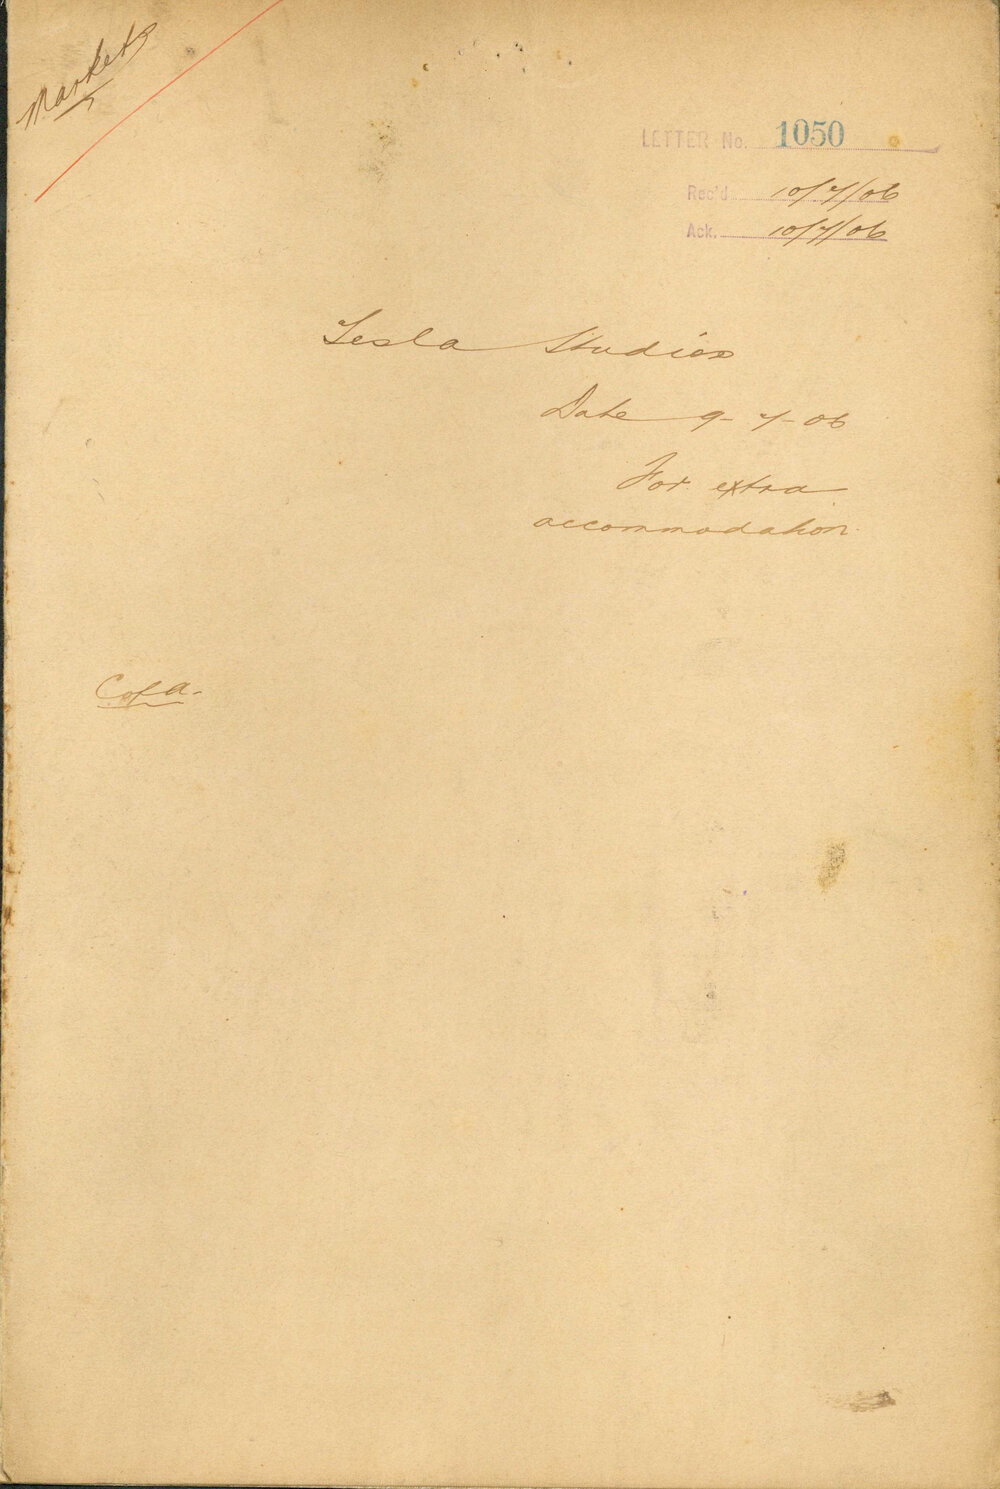 Markets
LETTER No. 1050
Rec'd 10/7/06
Ack. 10/7/06
Tesla Studios
Date 9-7-06
For extra
accommodation.